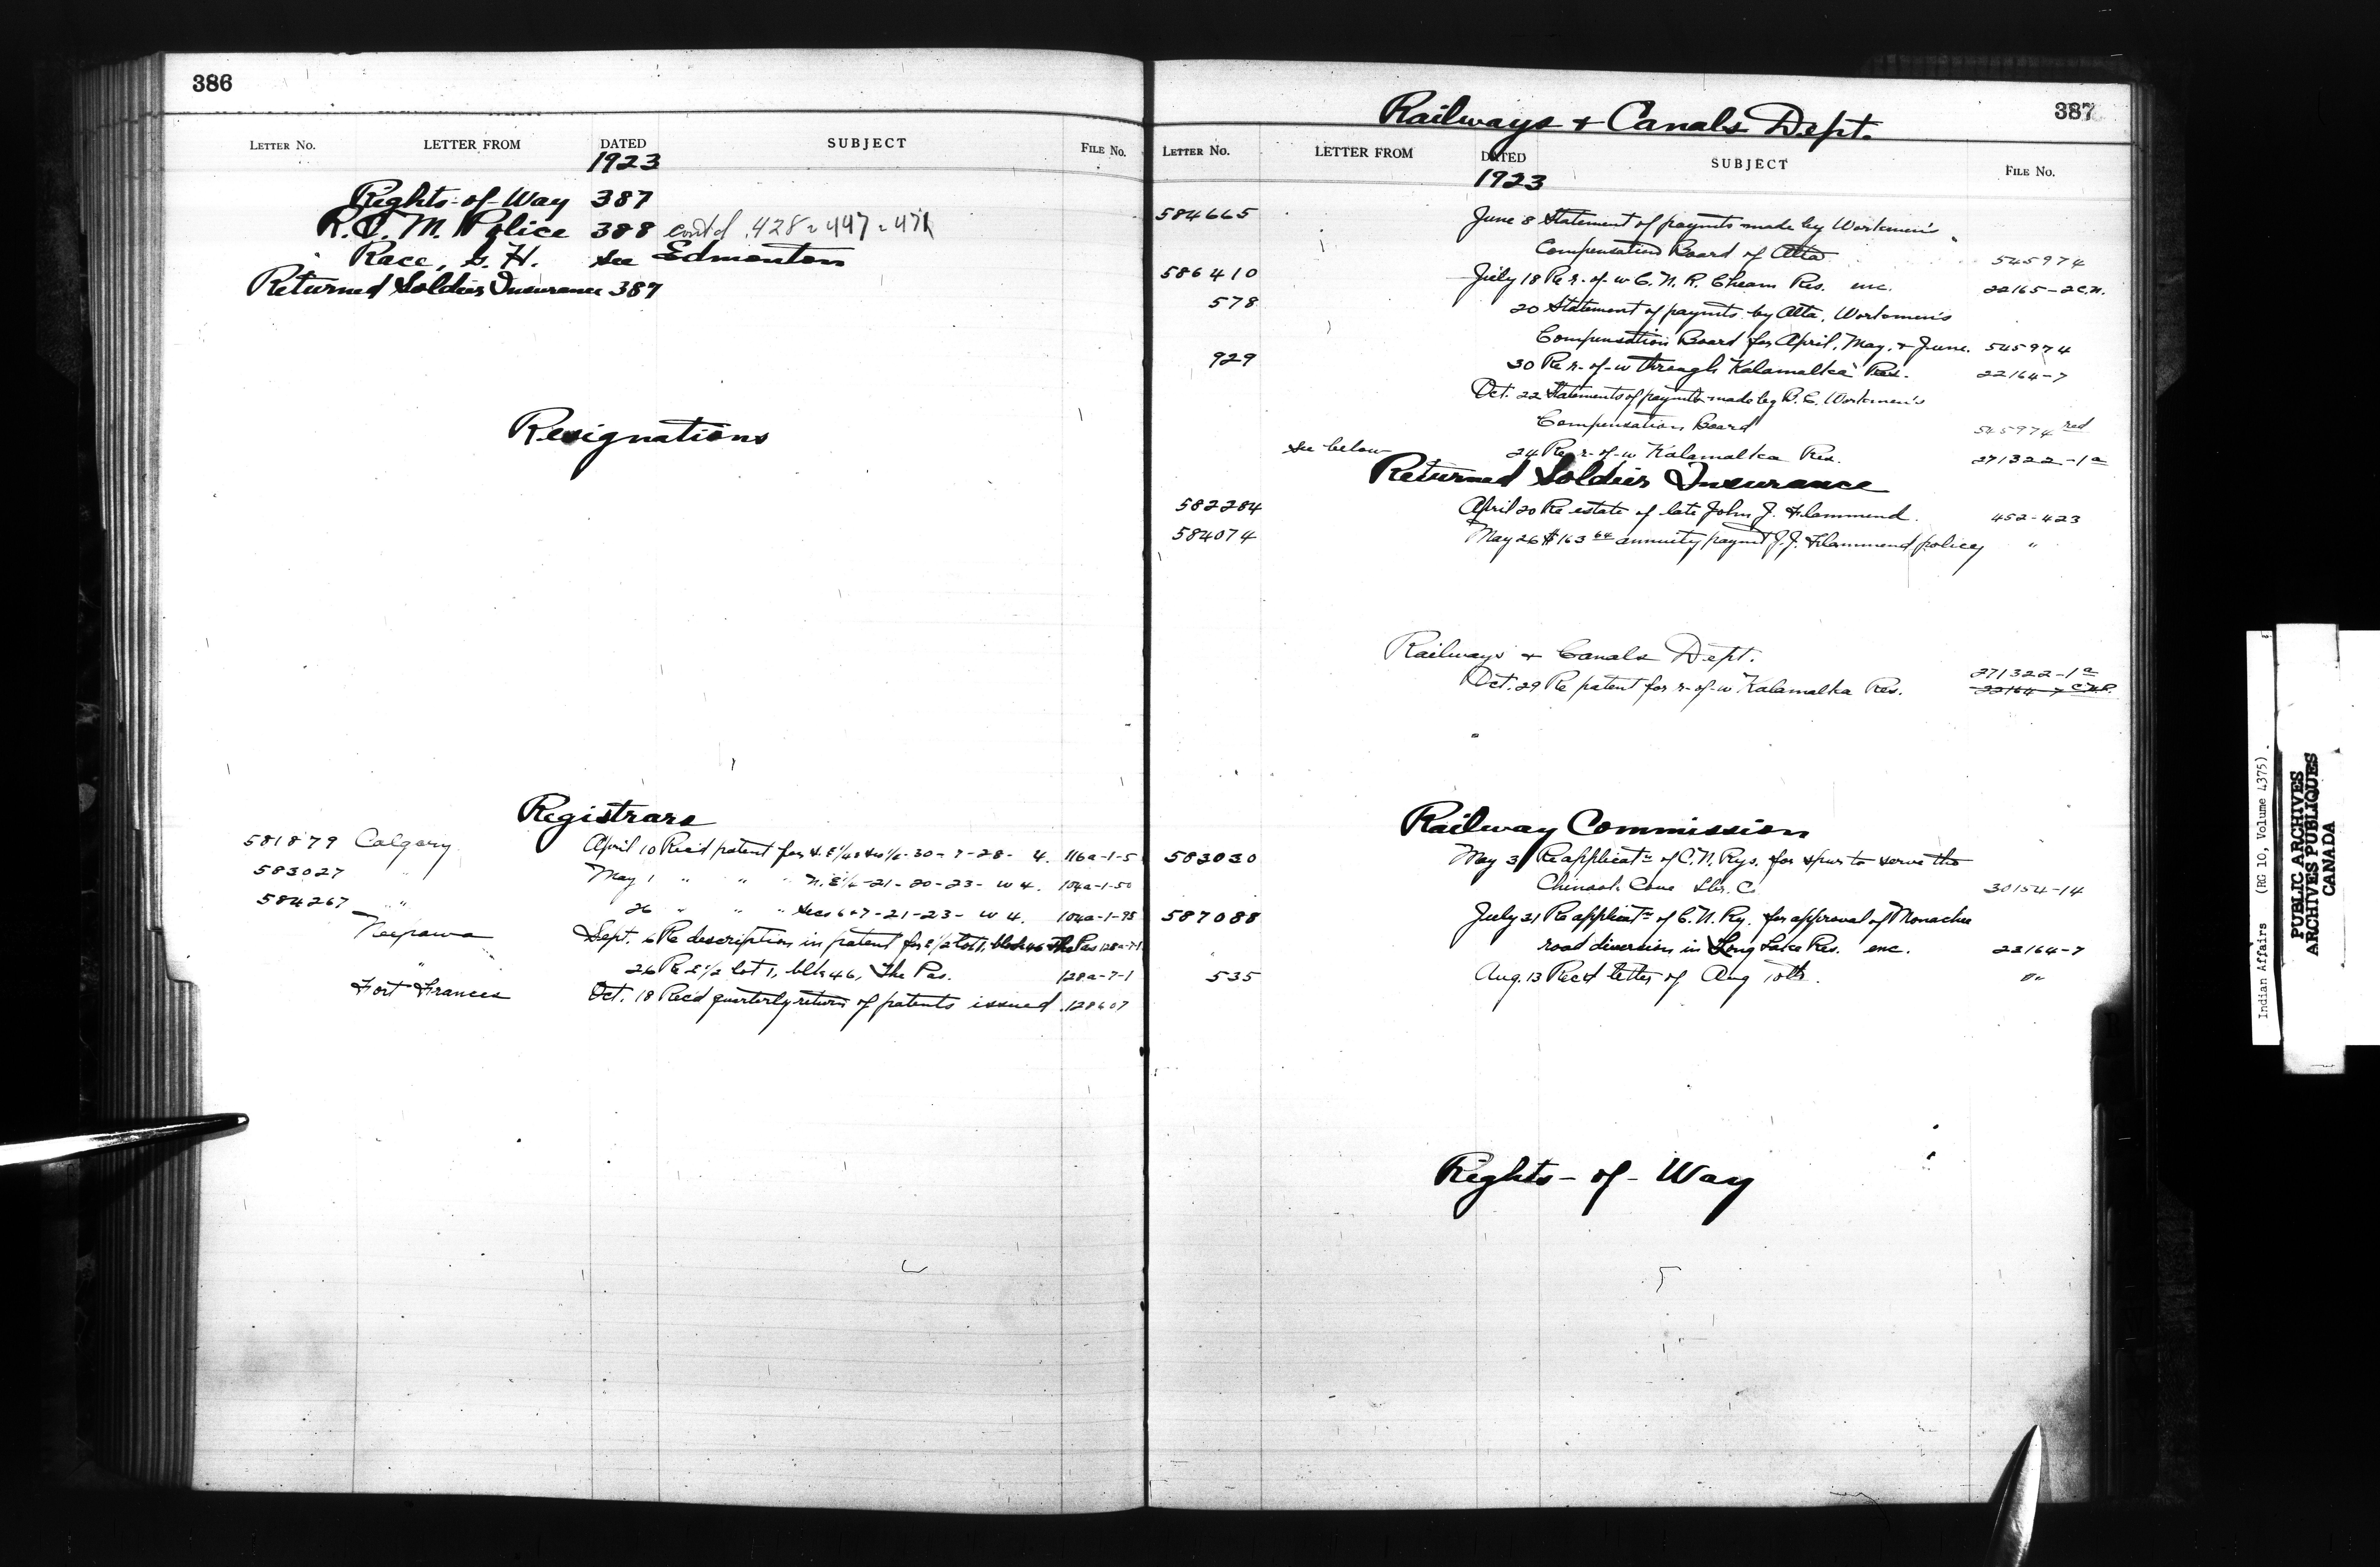 386
LETTER No. LETTER FROM DATED SUBJECT FILE No.
1923
Rights-of-Way 387
R.C.M. Police 388 cont'd 428 - 447 - 471
Race, G. H. see Edmonton
Returned Soldiers Insurance 387
Resignations
Registrars
581879 Calgary April 10 Rec'd patent for 30-7-28- 4. 116a-1-5
583027 " May 1 " " " N.E¼-21-20-23- W4. 104a-1-50
584267 " 26 " " " Secs 6+7-21-23- W4. 104a-1-95
Neepawa Sept. 6 Re description in patent for E½ lot 1, block 46 The Pas 128a-7-1
" 26 Re E½ lot 1, blk 46, The Pas. 128a-7-1
Fort Frances Oct. 18 Rec'd quarterly return of patents issued 128607
387
Railways + Canals Dept.
LETTER No. LETTER FROM DATED SUBJECT FILE No.
1923
584665 June 8 Statement of paymts made by Workmen's
Compensation Board of Alta 545974
586410 July 18 Re r-of-w C.N.R. Cheam Res. enc. 22165-2 C.N.
578 20 Statement of paymts by Alta. Workmen's
Compensation Board for April, May, + June. 545974
929 30 Re r-of-w through Kalamalka Res. 22164-7
Oct. 22 Statements of paymts made by B.C. Workmen's
Compensation Board 545974 red
see below 24 Re r-of-w Kalamalka Res. 271322-1a
Returned Soldiers Insurance
582284 April 20 Re estate of late John J. Hammond. 452-423
584074 May 26 $163 64 annuity paymt J.J. Hammond policy "
Railways + Canals Dept.
271322-1a
Oct. 29 Re patent for r-of-w Kalamalka Res. 22164-7
Railway Commission
583030 May 3 Re applicatn of C.N. Rys. for spur to serve the
Chinook Cove Lbr. Co. 30154-14
587088 July 21 Re applicatn of C.N. Ry. for approval of Monashee
road diversion in Long Lake Res. enc. 22164-7
535 Aug. 13 Rec'd letter of Aug 10th. "
Rights-of-Way
Indian Affairs (RG 10, Volume 4375)
PUBLIC ARCHIVES
ARCHIVES PUBLIQUES
CANADA